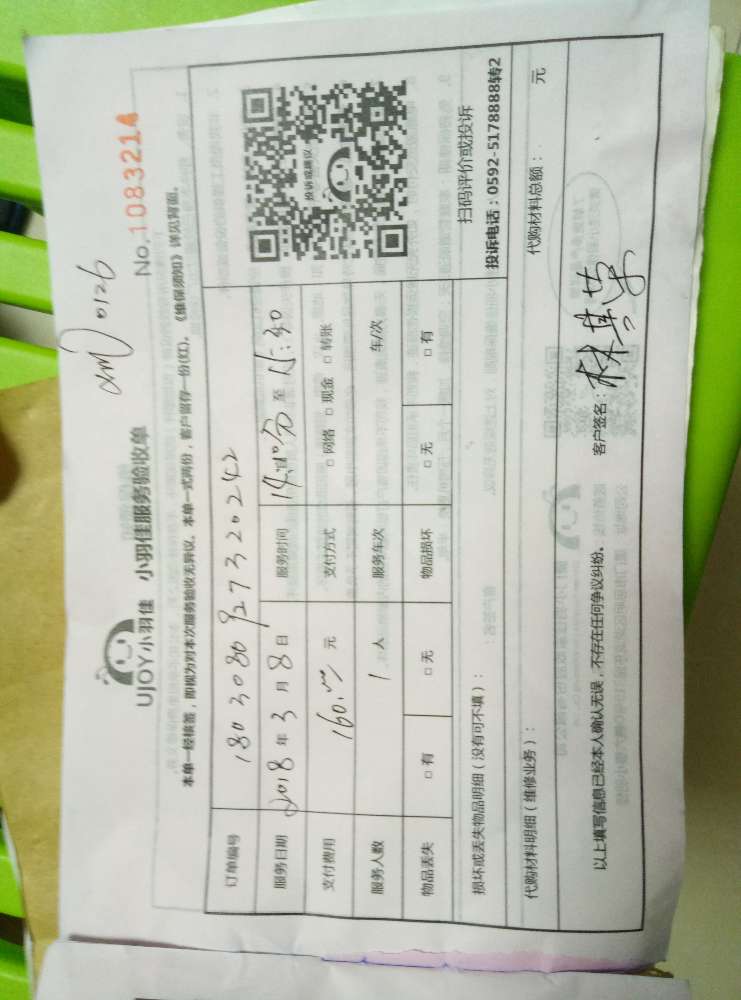 xm 0126
No.1083214
UJOY小羽佳 小羽佳服务验收单
本单一经核签，即视为对本次服务验收无异议。本单一式两份，客户留存一份(红)。《维保须知》详见背面。
订单编号 1803080927320242
服务日期 2018年3月8日 服务时间 至 15:40
支付费用 160.00 元 支付方式 □网络 □现金 □转账
服务人数 1 人 服务车次 车/次
物品丢失 □有 □无 物品损坏 □无 □有
投诉或建议
扫码评价或投诉
投诉电话：0592-5178888转2
损坏或丢失物品明细（没有可不填）：
代购材料明细（维修业务）： 代购材料总额： 元
以上填写信息已经本人确认无误，不存在任何争议纠纷。 客户签名：林其